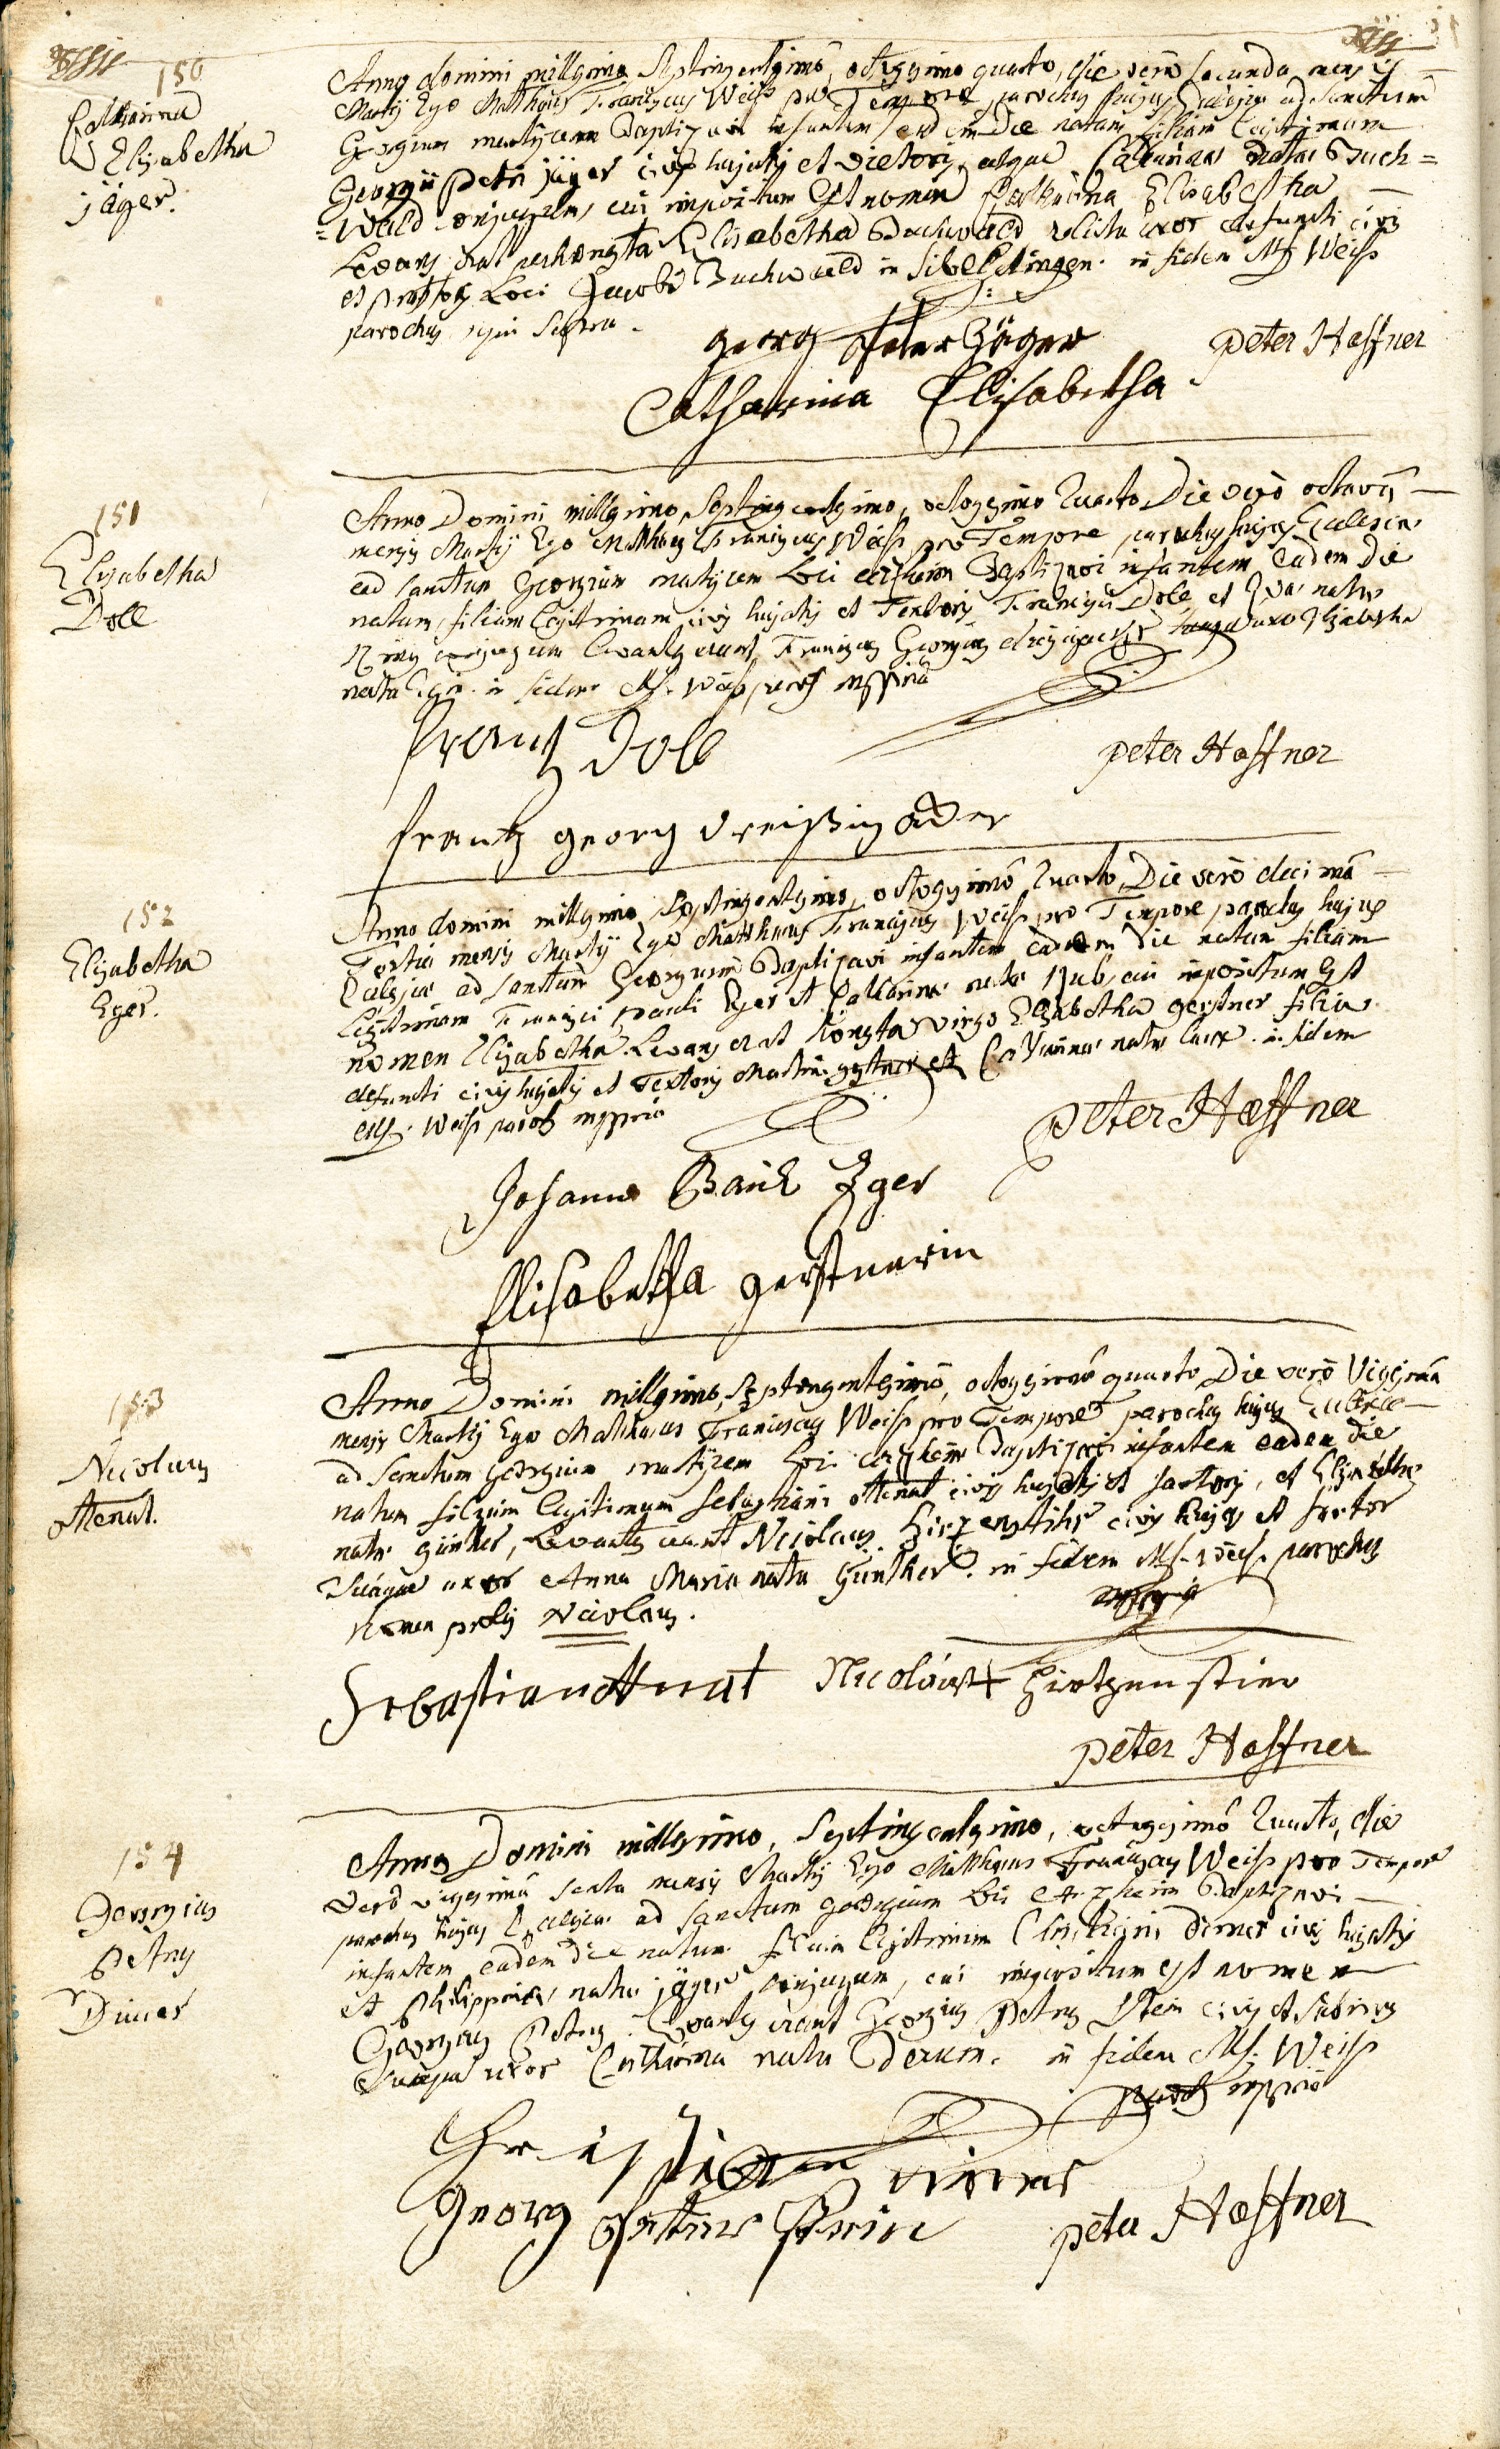 150
Catharina
Elisabetha
jäger.
Anno domini millesimo Septingentesimo, octogesimo quarto, die vero secunda mensis
Martij Ego Matthaeus Franciscus Weiss pro Tempore parochus hujus Ecclesiae ad Sanctum
Georgium martyrem Baptizavi infantem eadem Die natam filiam legitimam
Georgii Petri jäger civis hujatis et vietoris, atque Catharinae natae Buch=
=wald conjugum, cui impositum Est nomen Catharina Elisabetha
Levans erat perhonesta Elisabetha Buchwald relicta uxor defuncti civis
et Loci Jacobi Buchwald in Sibeldingen. in fidem Mf Weiss
parochus qui Supra.
georg Peter Jäger
Peter Haffner
Catharina Elisabetha
151
Elisabetha
Doll
Anno Domini millesimo Septingentesimo, octogesimo Quarto Die vero octava
mensis Martij Ego Matthaeus Franciscus Weiss pro Tempore parochus hujus Ecclesiae
ad sanctum Georgium martyrem Loci Baptizavi infantem Eadem Die
natam, filiam legitimam civis hujatis et Textoris Francisci Doll et Evae natae
conjugum Levantes erant Franciscus Georgius uxor Elisabetha
nata in fidem Mf. Weiss paroch mppria
frantz Doll
Peter Haffner
frantz georg dreißigacker
152
Elisabetha
Eger.
Anno domini millesimo Septingentesimo, octogesimo Quarto, Die vero decima
Tertia mensis Martij Ego Matthaeus Franciscus Weiss pro Tempore parochus hujus
Ecclesiae ad Sanctum Georgium Baptizavi infantem eadem Die natam filiam
legitimam Francisci Eger et Catharinae natae cui impositum Est
nomen Elisabetha. Levans erat honesta virgo Elisabetha gerstner filia
defuncti civis hujatis et Textoris Martini gerstner et Catharinae natae in fidem
Mf. Weiss paroch mppria
Peter Haffner
Johann Eger
Elisabetha gerstnerin
153
Nicolaus
ottenat.
Anno Domini millesimo, Septingentesimo, octogesimo quarto Die vero Vigesima
mensis Martij Ego Matthaeus Franciscus Weiss pro Tempore parochus hujus Ecclesiae
ad Sanctum Georgium martyrem Loci Baptizavi infantem eadem die
natum filium legitimum Sebastiani ottenat civis hujatis et sartoris, et Elisabethae
natae günther, Levantes erant Nicolaus civis hujas et sartor
Suaque uxor Anna Maria nata Günther. in fidem Mf. Weiss. parochus
nomen prolis Nicolaus.
mppria
Sebastian ottnat
Nicolaus Hirtzenstier
Peter Haffner
154
Georgius
Petrus
Dirner
Anno Domini millesimo, Septingentesimo, octogesimo Quarto, die
vero vigesima sexta mensis Martij Ego Matthaeus Franciscus Weiss pro Tempore
parochus hujus Ecclesiae ad Sanctum Georgium Loci Baptizavi
infantem eadem Die natum filium legitimum Christiani Dirner civis hujatis
et Philippinae natae jäger conjugum, cui impositum est nomen
Georgius Petrus. Levantes erant Georgius Petrus Stein civis et
Suaque uxor Catharina nata in fidem Mf. Weiss
paroch mppria
Christian dirner
Georg Petter Stein
Peter Haffner